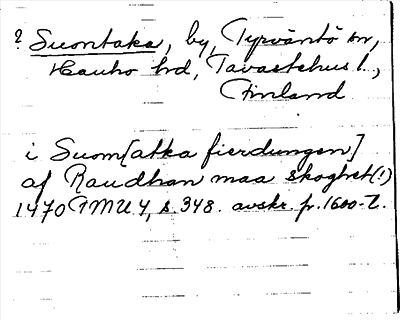 ? Suontaka, by, Tyrväntö sn,
Hauho hd, Tavastehus l.,
Finland
i Suom[atka fierdungen]
af Raudhan maa skoghet(!)
1470 FMU 4, s. 348. avskr. fr. 1600-t.